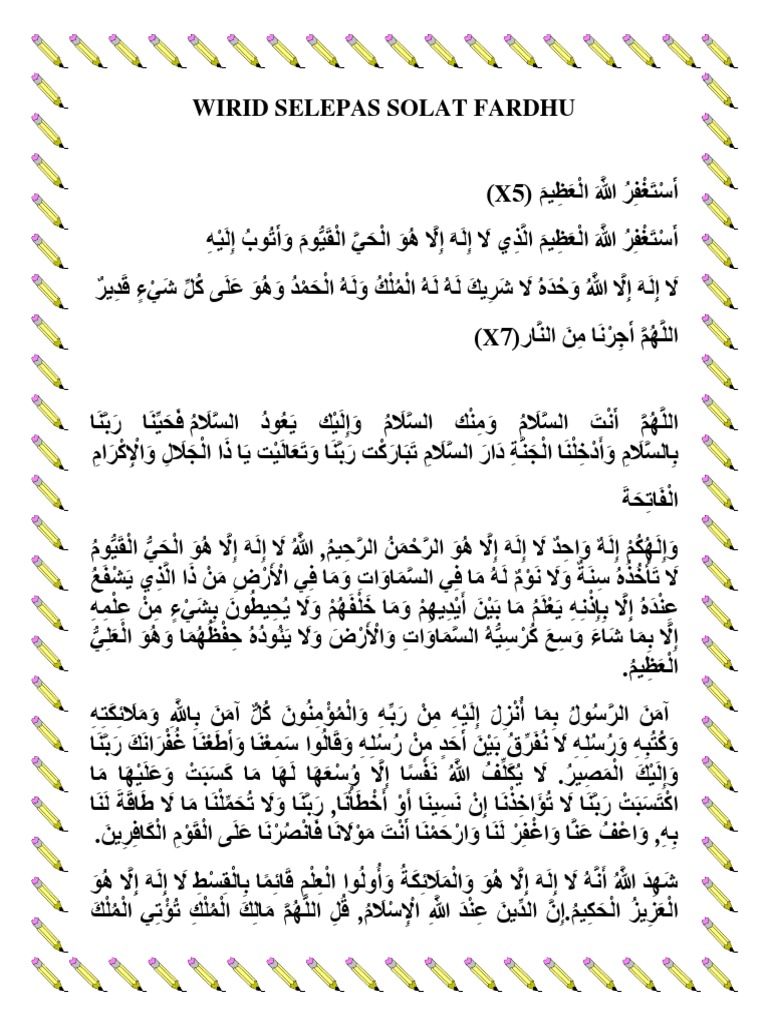 WIRID SELEPAS SOLAT FARDHU
أَسْتَغْفِرُ اللهَ الْعَظِيمَ (X5)
أَسْتَغْفِرُ اللهَ الْعَظِيمَ الَّذِي لَا إِلَهَ إِلَّا هُوَ الْحَيَّ الْقَيُّومَ وَأَتُوبُ إِلَيْهِ
لَا إِلَهَ إِلَّا اللهُ وَحْدَهُ لَا شَرِيكَ لَهُ لَهُ الْمُلْكُ وَلَهُ الْحَمْدُ وَهُوَ عَلَى كُلِّ شَيْءٍ قَدِيرٌ
اللَّهُمَّ أَجِرْنَا مِنَ النَّار(X7)
اللَّهُمَّ أَنْتَ السَّلَامُ وَمِنْكَ السَّلَامُ وَإِلَيْك يَعُودُ السَّلَامُ فَحَيِّنَا رَبَّنَا
بِالسَّلَامِ وَأَدْخِلْنَا الْجَنَّةِ دَارَ السَّلَامِ تَبَارَكْت رَبَّنَا وَتَعَالَيْت يَا ذَا الْجَلَالِ وَالْإِكْرَامِ
الْفَاتِحَةَ
وَإِلَهُكُمْ إِلَهٌ وَاحِدٌ لَا إِلَهَ إِلَّا هُوَ الرَّحْمَنُ الرَّحِيمُ, اللهُ لَا إِلَهَ إِلَّا هُوَ الْحَيُّ الْقَيُّومُ
لَا تَأْخُذُهُ سِنَةٌ وَلَا نَوْمٌ لَهُ مَا فِي السَّمَاوَاتِ وَمَا فِي الْأَرْضِ مَنْ ذَا الَّذِي يَشْفَعُ
عِنْدَهُ إِلَّا بِإِذْنِهِ يَعْلَمُ مَا بَيْنَ أَيْدِيهِمْ وَمَا خَلْفَهُمْ وَلَا يُحِيطُونَ بِشَيْءٍ مِنْ عِلْمِهِ
إِلَّا بِمَا شَاءَ وَسِعَ كُرْسِيُّهُ السَّمَاوَاتِ وَالْأَرْضَ وَلَا يَئُودُهُ حِفْظُهُمَا وَهُوَ الْعَلِيُّ
الْعَظِيمُ.
آمَنَ الرَّسُولُ بِمَا أُنْزِلَ إِلَيْهِ مِنْ رَبِّهِ وَالْمُؤْمِنُونَ كُلٌّ آمَنَ بِاللهِ وَمَلَائِكَتِهِ
وَكُتُبِهِ وَرُسُلِهِ لَا نُفَرِّقُ بَيْنَ أَحَدٍ مِنْ رُسُلِهِ وَقَالُوا سَمِعْنَا وَأَطَعْنَا غُفْرَانَكَ رَبَّنَا
وَإِلَيْكَ الْمَصِيرُ. لَا يُكَلِّفُ اللهُ نَفْسًا إِلَّا وُسْعَهَا لَهَا مَا كَسَبَتْ وَعَلَيْهَا مَا
اكْتَسَبَتْ رَبَّنَا لَا تُؤَاخِذْنَا إِنْ نَسِينَا أَوْ أَخْطَأْنَا, رَبَّنَا وَلَا تُحَمِّلْنَا مَا لَا طَاقَةَ لَنَا
بِهِ, وَاعْفُ عَنَّا وَاغْفِرْ لَنَا وَارْحَمْنَا أَنْتَ مَوْلَانَا فَانْصُرْنَا عَلَى الْقَوْمِ الْكَافِرِينَ.
شَهِدَ اللهُ أَنَّهُ لَا إِلَهَ إِلَّا هُوَ وَالْمَلَائِكَةُ وَأُولُوا الْعِلْمِ قَائِمًا بِالْقِسْطِ لَا إِلَهَ إِلَّا هُوَ
الْعَزِيزُ الْحَكِيمُ.إِنَّ الدِّينَ عِنْدَ اللهِ الْإِسْلَامُ, قُلِ اللَّهُمَّ مَالِكَ الْمُلْكِ تُؤْتِي الْمُلْكَ